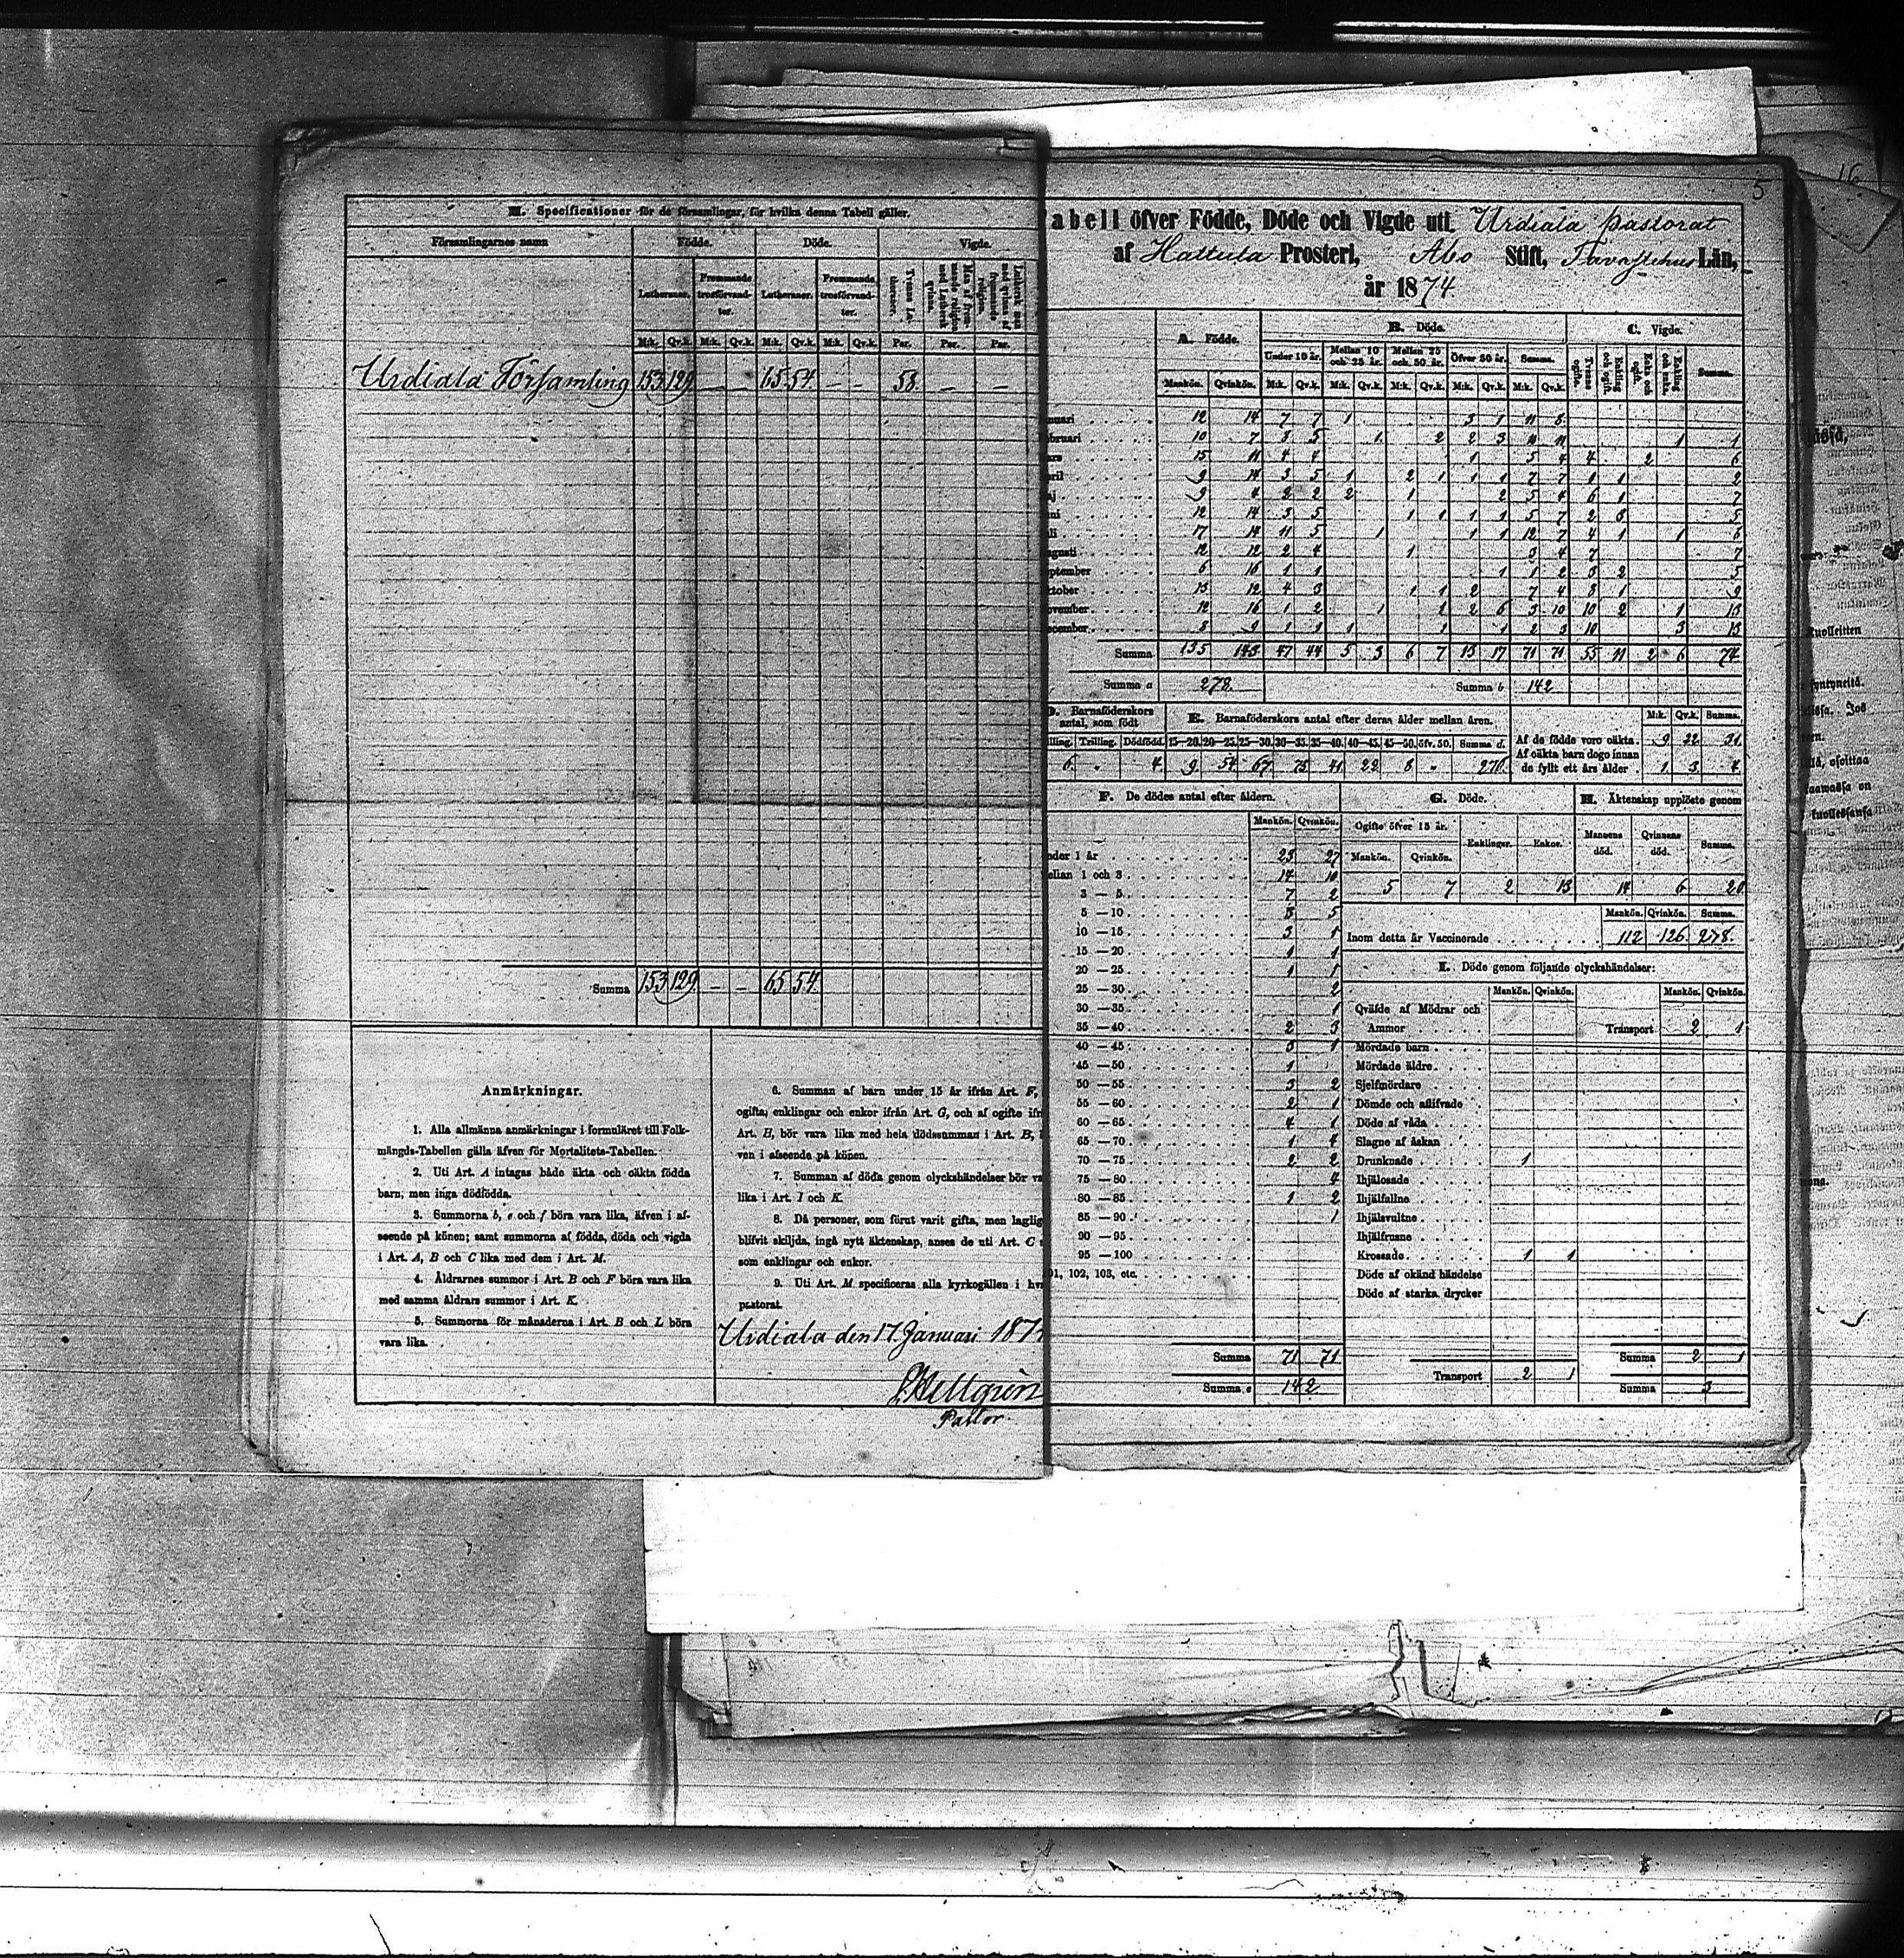 M. Specificationer för de församlingar, för hvilka denna Tabell gäller.
Församlingarnes namn Födde. Döde. Vigde.
Lutheraner. Fremmande trosförvandter. Lutheraner. Fremmande trosförvandter.
M:k. Qv.k. M:k. Qv.k. M:k. Qv.k. M:k. Qv.k. Par. Par. Par.
Urdiala Församling 153 129 — — 65 54 — — 58. — —
Summa 153 129 — — 65 54
Anmärkningar.
1. Alla allmänna anmärkningar i formuläret till Folk-
mängds-Tabellen gälla äfven för Mortalitets-Tabellen.
2. Uti Art. A intagas både äkta och oäkta födda
barn, men inga dödfödda.
3. Summorna b, e och f böra vara lika, äfven i af-
seende på könen; samt summorna af födda, döda och vigda
i Art. A, B och C lika med dem i Art. M.
4. Åldrarnes summor i Art. B och F böra vara lika
med samma åldrars summor i Art. K.
5. Summorna för månaderna i Art. B och L böra
vara lika.
6. Summan af barn under 15 år ifrån Art. F,
ogifta, enklingar och enkor ifrån Art. G, och af ogifte ifr
Art. H, bör vara lika med hela dödssumman i Art. B,
ven i afseende på könen.
7. Summan af döda genom olyckshändelser bör va
lika i Art. I och K.
8. Då personer, som förut varit gifta, men laglig
blifvit skiljda, ingå nytt äktenskap, anses de uti Art. C
som enklingar och enkor.
9. Uti Art. M specificeras alla kyrkogällen i hv
pastorat.
Urdiala den 17. Januari 187
Pastor.
5
abell öfver Födde, Döde och Vigde uti Urdiala pastorat
af Hattula Prosteri, Abo Stift, Tavastehus Län,
år 1874.
A. Födde. B. Döde. C. Vigde.
Under 10 år. Mellan 10 och 25 år. Mellan 25 och 50 år. Öfver 50 år. Summa. Summa.
Mankön. Qvinkön. M:k. Qv.k. M:k. Qv.k. M:k. Qv.k. M:k. Qv.k. M:k. Qv.k.
nuari 12 14 7 7 1 3 1 11 8
bruari 10 7 8 5 1 2 2 3 10 11 1 1
ars 15 11 4 4 1 5 4 4 2 6
pril 9 14 3 5 1 2 1 1 1 7 7 1 1 2
aj 9 4 2 2 2 1 2 5 4 6 1 7
ni 12 14 3 5 1 1 1 1 5 7 2 3 5
li 17 14 11 5 1 1 1 12 7 4 1 1 6
gusti 12 12 2 4 1 3 4 7 7
ptember 6 16 1 1 1 1 2 3 2 5
ktober 13 12 4 3 1 1 2 7 4 8 1 9
ovember 12 16 1 2 1 1 2 6 3 10 10 2 1 13
ecember 8 9 1 1 1 1 1 2 3 10 3 13
Summa 135 143 47 44 5 3 6 7 13 17 71 71 55 11 2 6 74
Summa a 278. Summa b 142
D. Barnaföderskors antal, som födt
E. Barnaföderskors antal efter deras ålder mellan åren.
M:k. Qv.k. Summa.
lling. Trilling. Dödfödd. 15—20. 20—25. 25—30. 30—35. 35—40. 40—45. 45—50. öfv. 50. Summa d.
Af de födde voro oäkta 9 22 31
Af oäkta barn dogo innan
de fyllt ett års ålder 1 3 4
6. „ 4. 9 54 67 75 41 22 8 „ 276.
F. De dödes antal efter åldern. G. Döde. H. Äktenskap upplöste genom
Mankön. Qvinkön. Ogifte öfver 15 år. Enklingar. Enkor. Mannens död. Qvinnans död. Summa.
Mankön. Qvinkön.
5 7 2 13 14 6 20
nder 1 år 23 27
ellan 1 och 3 14 10
3 — 5 7 2
5 — 10 3 5
10 — 15 3 1
15 — 20 1 1
20 — 25 1 1
25 — 30 2
30 — 35 1
35 — 40 2 3
40 — 45 3 1
45 — 50 1
50 — 55 3 2
55 — 60 2 1
60 — 65 4 1
65 — 70 1 4
70 — 75 2 2
75 — 80 4
80 — 85 1 2
85 — 90 1
90 — 95
95 — 100
01, 102, 103, etc.
Summa 71 71
Summa e 142
Mankön. Qvinkön. Summa.
Inom detta år Vaccinerade 112 126. 278.
I. Döde genom följande olyckshändelser:
Mankön. Qvinkön. Mankön. Qvinkön.
Qväfde af Mödrar och
Ammor Transport 2 1
Mördade barn
Mördade äldre
Sjelfmördare
Dömde och aflifvade
Döde af våda
Slagne af åskan
Drunknade 1
Ihjälosade
Ihjälfallne
Ihjälsvultne
Ihjälfrusne
Krossade 1 1
Döde af okänd händelse
Döde af starka drycker
Summa 2 1
Transport 2 1
Summa 3
16